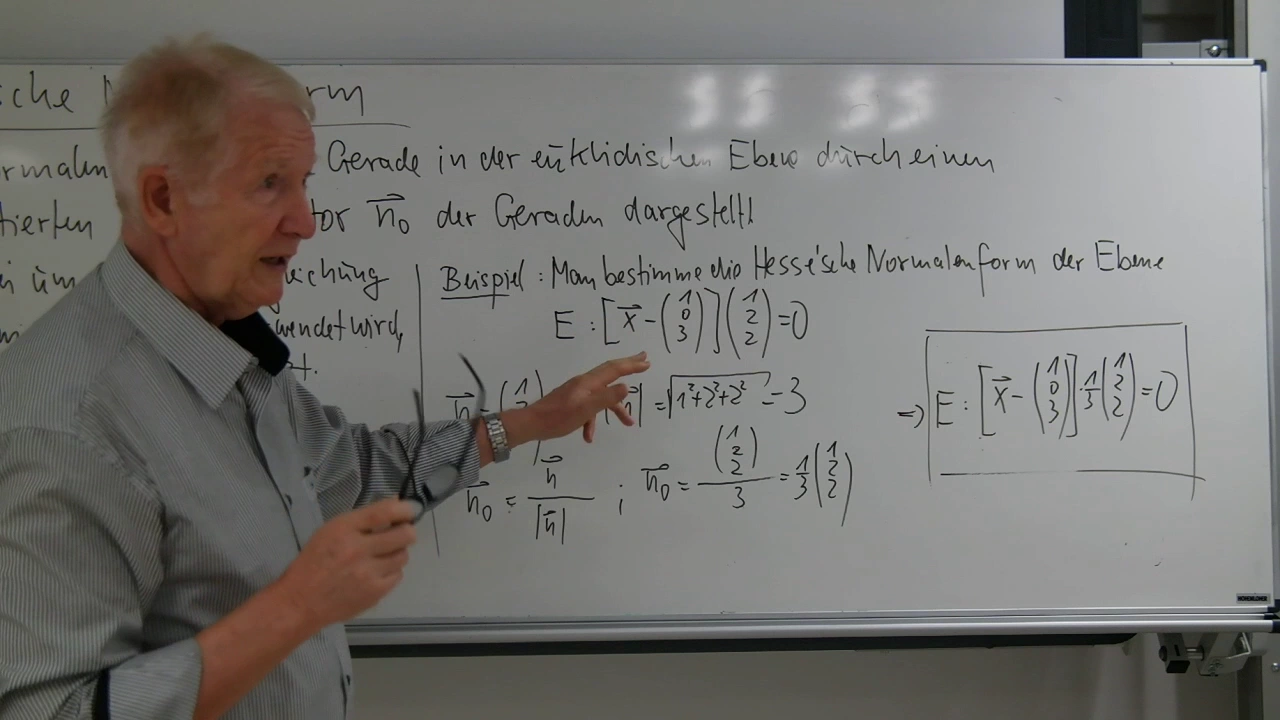 sche N rm
ormalen Gerade in der euklidischen Ebene durch einen
tierten tor n⃗₀ der Geraden dargestellt!
ei um eichung
wendet wird,
t.
Beispiel: Man bestimme die Hesse'sche Normalenform der Ebene
E : [x⃗ - (1 0 3)] (1 2 2) = 0
n⃗ = (1 2 |n⃗| = √1²+2²+2² = 3
n⃗₀ = n⃗ / |n⃗| ; n⃗₀ = (1 2 2) / 3 = 1/3 (1 2 2)
⇒ E : [x⃗ - (1 0 3)] · 1/3 (1 2 2) = 0